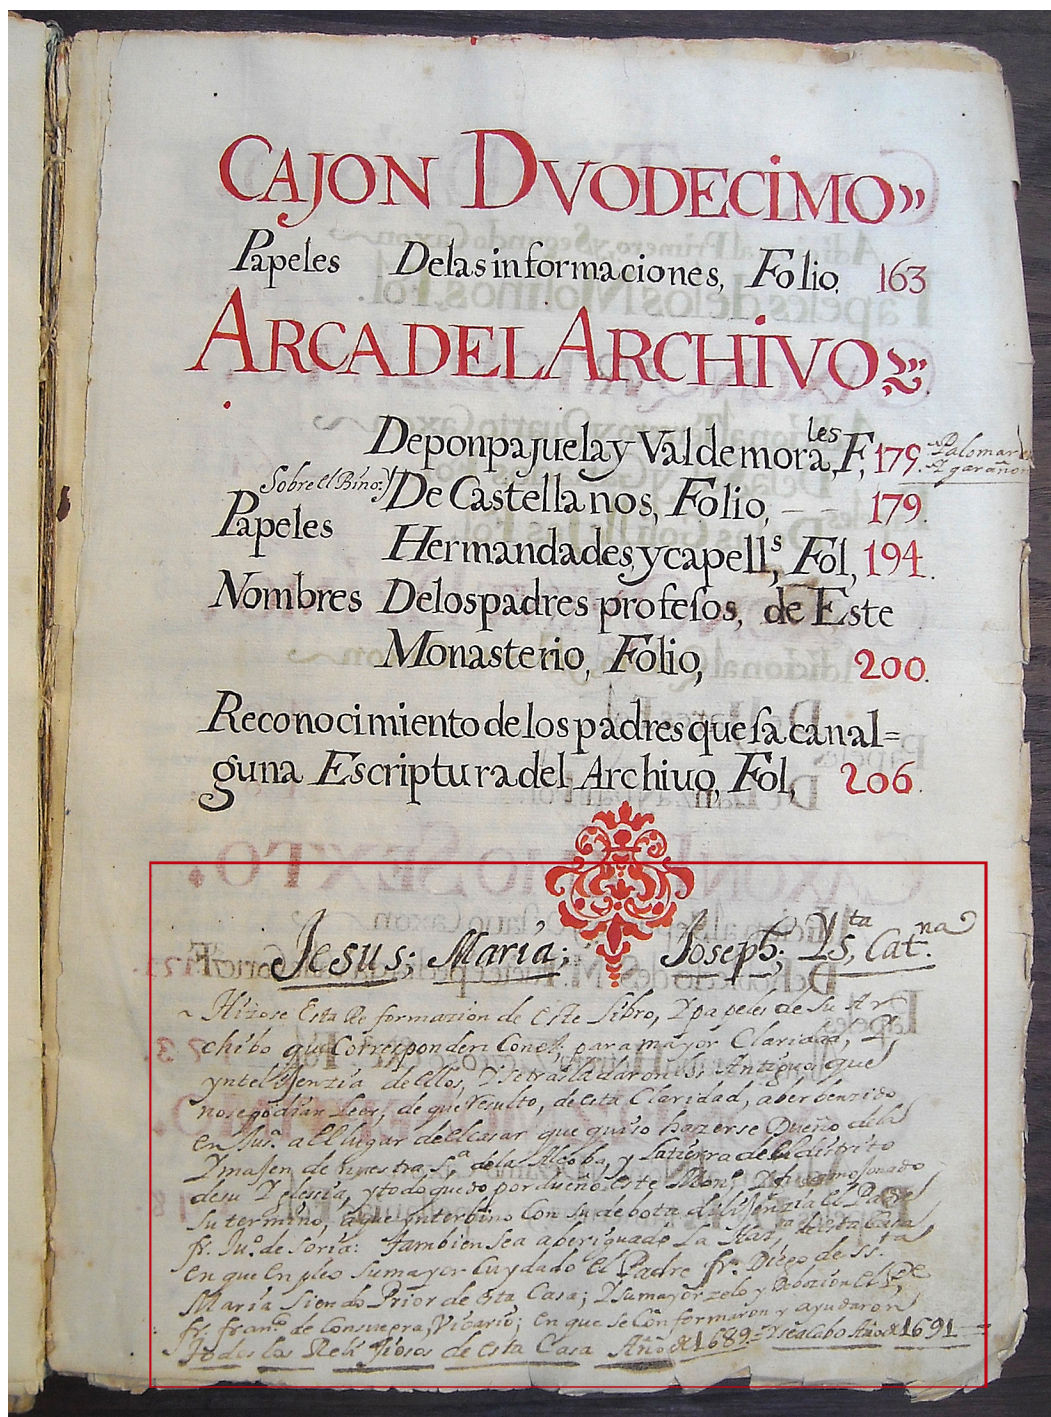 CAJON DVODECIMO
Papeles Delas informaciones, Folio. 163
ARCA DEL ARCHIVO
De ponpajuela y Valdemorales, F, 179.
Palomar
Sobre el Bino:
De Castellanos, Folio, 179.
Papeles
Hermandades, y capells, Fol, 194.
Nombres Delos padres profesos, de Este
Monasterio, Folio, 200.
Reconocimiento de los padres que sacan al=
guna Escriptura del Archiuo, Fol, 206.
Jesus; Maria; Joseph; Ys, Catna.
Hizose Esta Re formazion de Este libro, Y papeles de su Ar
chibo que Corresponden Conel, para mayor Claridad, Y
yntelIjenzia de ellos, Y se trasladaron los Antiguos que
nose podian Leer, de que Resulto, de esta Claridad, aber benzido
en al lugar de el casar que quiso hazerse Dueño dela
Ymajen de nuestra Sra dela Alcoba, y La tierra del distrito
desu Yglesia, y todo quedo por dueño este Mono, Y
su termino, aque ynterbino Con su debota dilijenzia El Padre
fr. Juo. de Soria: tambien sea aberiguado La de esta Casa
en que enpleo su mayor Cuydado el Padre fr. Diego de Sta
Maria siendo Prior de esta Casa; Y su mayor zelo y Debozion el Pe
fr. franco. de Vicario; en que se Con formaron y ayudaron
todos los Relijiosos de esta Casa Año de 1689 = Y se acabo Año de 1691 =